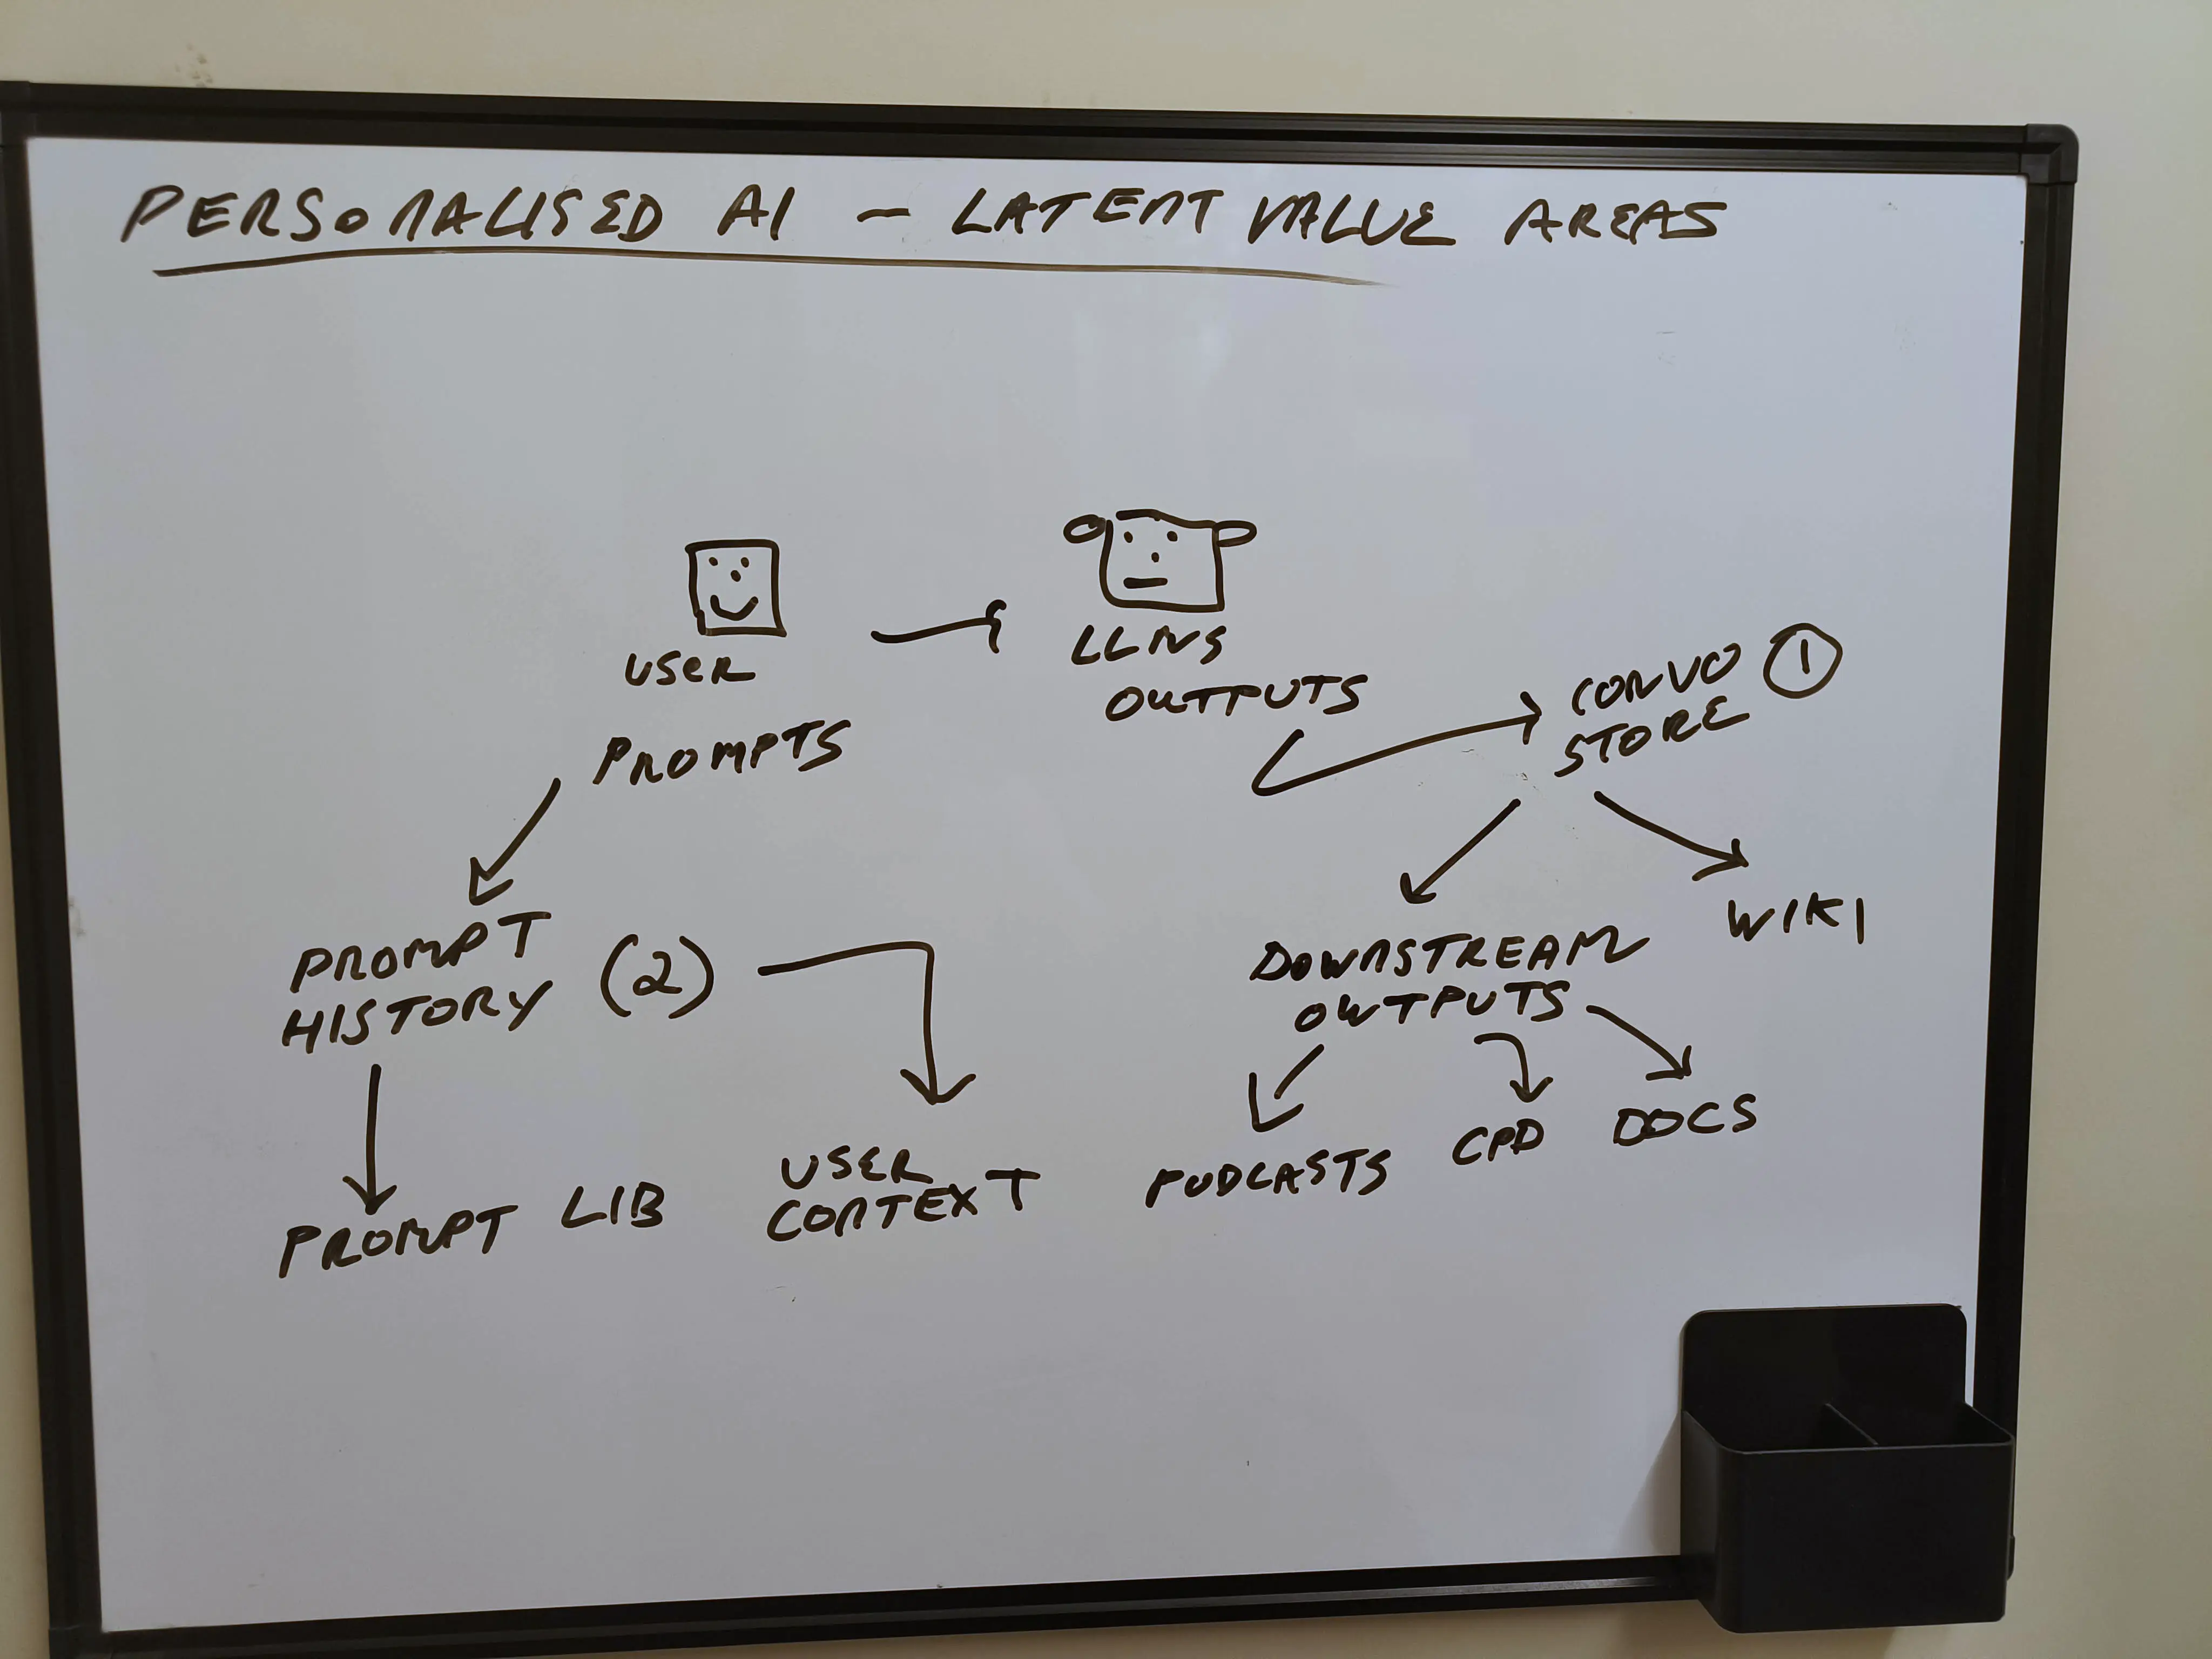 PERSONALISED AI - LATENT VALUE AREAS
USER
PROMPTS
LLMS
OUTPUTS
CONVO ①
STORE
PROMPT
HISTORY (2)
PROMPT LIB
USER
CONTEXT
DOWNSTREAM
OUTPUTS
WIKI
PODCASTS
CPD
DOCS